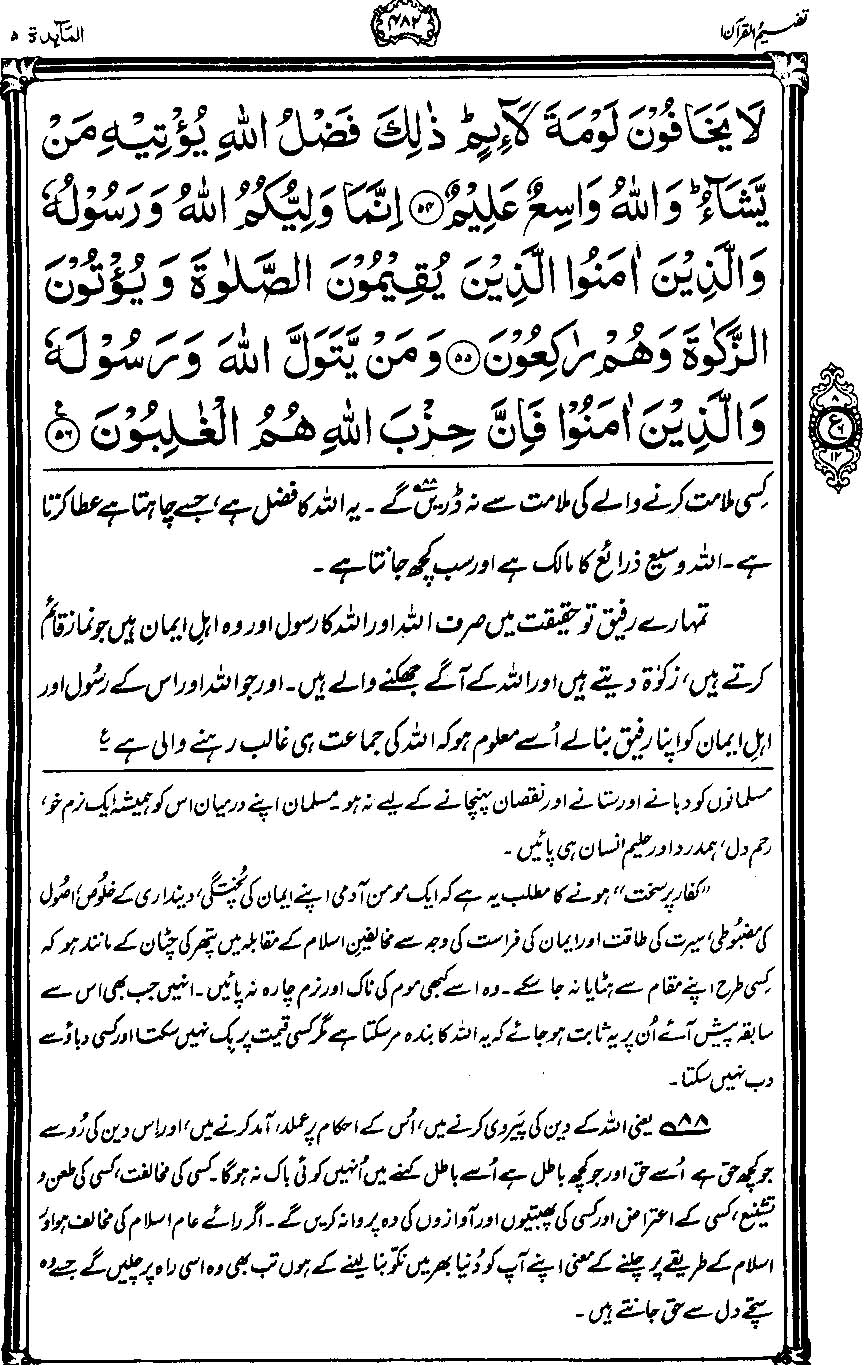 تفہیم القرآن ۱
۴۸۲
المآئدۃ ۵
لَا یَخَافُوْنَ لَوْمَةَ لَآئِمٍ ؕ ذٰلِكَ فَضْلُ اللّٰهِ یُؤْتِیْهِ مَنْ
یَّشَآءُ ؕ وَاللّٰهُ وَاسِعٌ عَلِیْمٌ ﴿۵۴﴾ اِنَّمَا وَلِیُّكُمُ اللّٰهُ وَرَسُوْلُهٗ
وَالَّذِیْنَ اٰمَنُوا الَّذِیْنَ یُقِیْمُوْنَ الصَّلٰوةَ وَیُؤْتُوْنَ
الزَّكٰوةَ وَهُمْ رٰكِعُوْنَ ﴿۵۵﴾ وَمَنْ یَّتَوَلَّ اللّٰهَ وَرَسُوْلَهٗ
وَالَّذِیْنَ اٰمَنُوْا فَاِنَّ حِزْبَ اللّٰهِ هُمُ الْغٰلِبُوْنَ ﴿۵۶﴾ ع
۸
ع
۶
۱۲
کسی ملامت کرنے والے کی ملامت سے نہ ڈریں ۸۸ گے۔ یہ اللہ کا فضل ہے، جسے چاہتا ہے عطا کرتا
ہے۔ اللہ وسیع ذرائع کا مالک ہے اور سب کچھ جانتا ہے۔
تمہارے رفیق تو حقیقت میں صرف اللہ اور اللہ کا رسول اور وہ اہلِ ایمان ہیں جو نماز قائم
کرتے ہیں، زکوٰۃ دیتے ہیں اور اللہ کے آگے جھکنے والے ہیں۔ اور جو اللہ اور اس کے رسُول اور
اہلِ ایمان کو اپنا رفیق بنالے اُسے معلوم ہو کہ اللہ کی جماعت ہی غالب رہنے والی ہے ع
مسلمانوں کو دبانے اور ستانے اور نقصان پہنچانے کے لیے نہ ہو۔ مسلمان اپنے درمیان اس کو ہمیشہ ایک نرم خو،
رحم دل، ہمدرد اور حلیم انسان ہی پائیں۔
”کفار پر سخت“ ہونے کا مطلب یہ ہے کہ ایک مومن آدمی اپنے ایمان کی پُختگی، دینداری کے خلوص، اُصول
کی مضبُوطی، سیرت کی طاقت اور ایمان کی فراست کی وجہ سے مخالفینِ اسلام کے مقابلہ میں پتھر کی چٹان کے مانند ہو کہ
کسی طرح اپنے مقام سے ہٹایا نہ جا سکے۔ وہ اسے کبھی موم کی ناک اور نرم چارہ نہ پائیں۔ انہیں جب بھی اس سے
سابقہ پیش آئے اُن پر یہ ثابت ہو جائے کہ یہ اللہ کا بندہ مر سکتا ہے مگر کسی قیمت پر بِک نہیں سکتا اور کسی دباؤ سے
دب نہیں سکتا۔
۸۸ یعنی اللہ کے دین کی پیَروی کرنے میں، اُس کے احکام پر عملدرآمد کرنے میں، اور اِس دین کی رُو سے
جو کچھ حق ہے اُسے حق اور جو کچھ باطل ہے اُسے باطل کہنے میں اُنہیں کوئی باک نہ ہوگا۔ کسی کی مخالفت، کسی کی طعن و
تشنیع، کسی کے اعتراض اور کسی کی پھبتیوں اور آوازوں کی وہ پروا نہ کریں گے۔ اگر رائے عام اسلام کی مخالف ہو اور
اسلام کے طریقے پر چلنے کے معنی اپنے آپ کو دُنیا بھر میں نکّو بنا لینے کے ہوں تب بھی وہ اسی راہ پر چلیں گے جسے وہ
سچّے دل سے حق جانتے ہیں۔